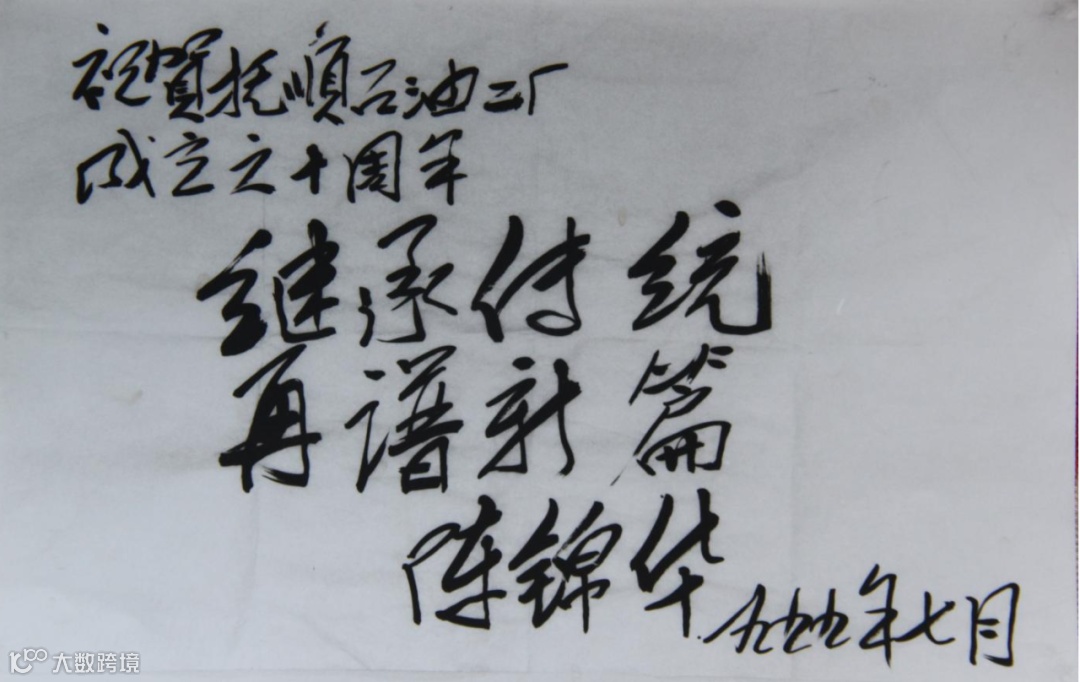 祝賀抚順石油二厂
成立六十周年
继承传统
再谱新篇
陈锦华
一九九九年七月
大数跨境